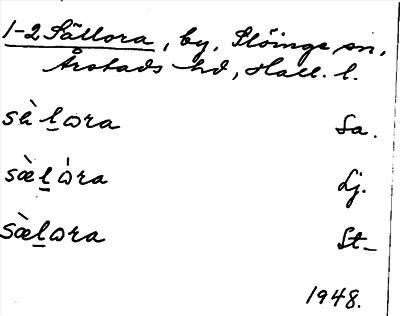 1-2 Sällora, by, Slöinge sn,
Årstads hd, Hall. l.
sä̀l̠ωra Sa.
sæ̀l̠ώra Lj.
sæ̀l̠ωra St_
1948.